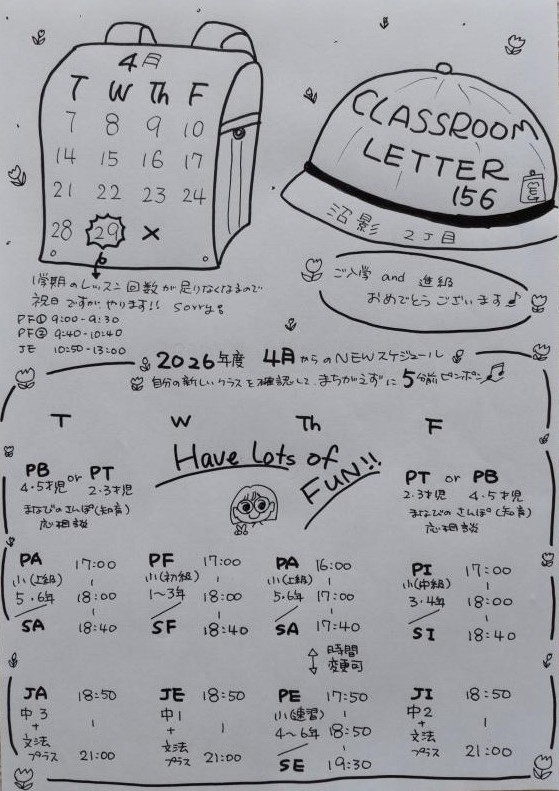 4月
T W Th F
7 8 9 10
14 15 16 17
21 22 23 24
28 29 ×
CLASSROOM
LETTER
156
沼影 2丁目
1学期のレッスン回数が足りなくなるので
祝日ですが、やります!! sorry。
PF① 9:00-9:30
PF② 9:40-10:40
JE 10:50-13:00
ご入学 and 進級
おめでとうございます♪
2026年度 4月からのNEWスケジュール
自分の新しいクラスを確認して、まちがえずに5分前ピンポン♫
T W Th F
Have Lots of
FUN!!
PB or PT
4・5才児 2・3才児
まなびのさんぽ(知育)
応相談
PT or PB
2・3才児 4・5才児
まなびのさんぽ(知育)
応相談
PA 17:00
小(上級) |
5・6年 18:00
/ |
SA 18:40
PF 17:00
小(初級) |
1〜3年 18:00
/ |
SF 18:40
PA 16:00
小(上級) |
5・6年 17:00
/ |
SA 17:40
↕ 時間
変更可
PI 17:00
小(中級) |
3・4年 18:00
/ |
SI 18:40
JA 18:50
中3
+ |
文法
プラス 21:00
JE 18:50
中1
+ |
文法
プラス 21:00
PE 17:50
小(速習) |
4〜6年 18:50
/ |
SE 19:30
JI 18:50
中2
+ |
文法
プラス 21:00